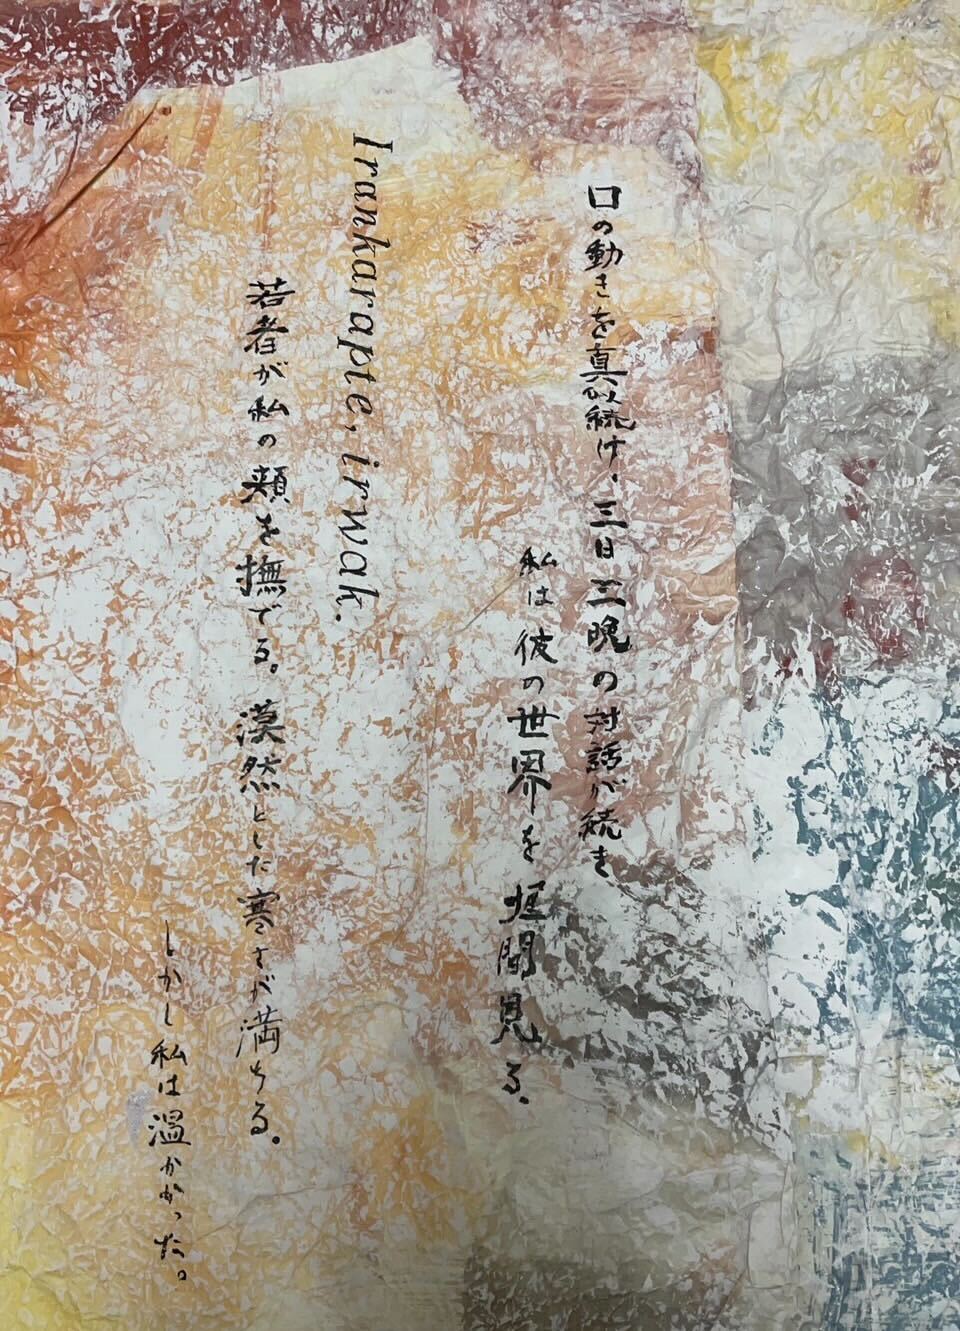 口の動きを真似続け、三日三晩の対話が続き
私は彼の世界を垣間見る。
Irankarapte, irwak.
若者が私の頬を撫でる。漠然とした寒さが満ちる。
しかし私は温かかった。